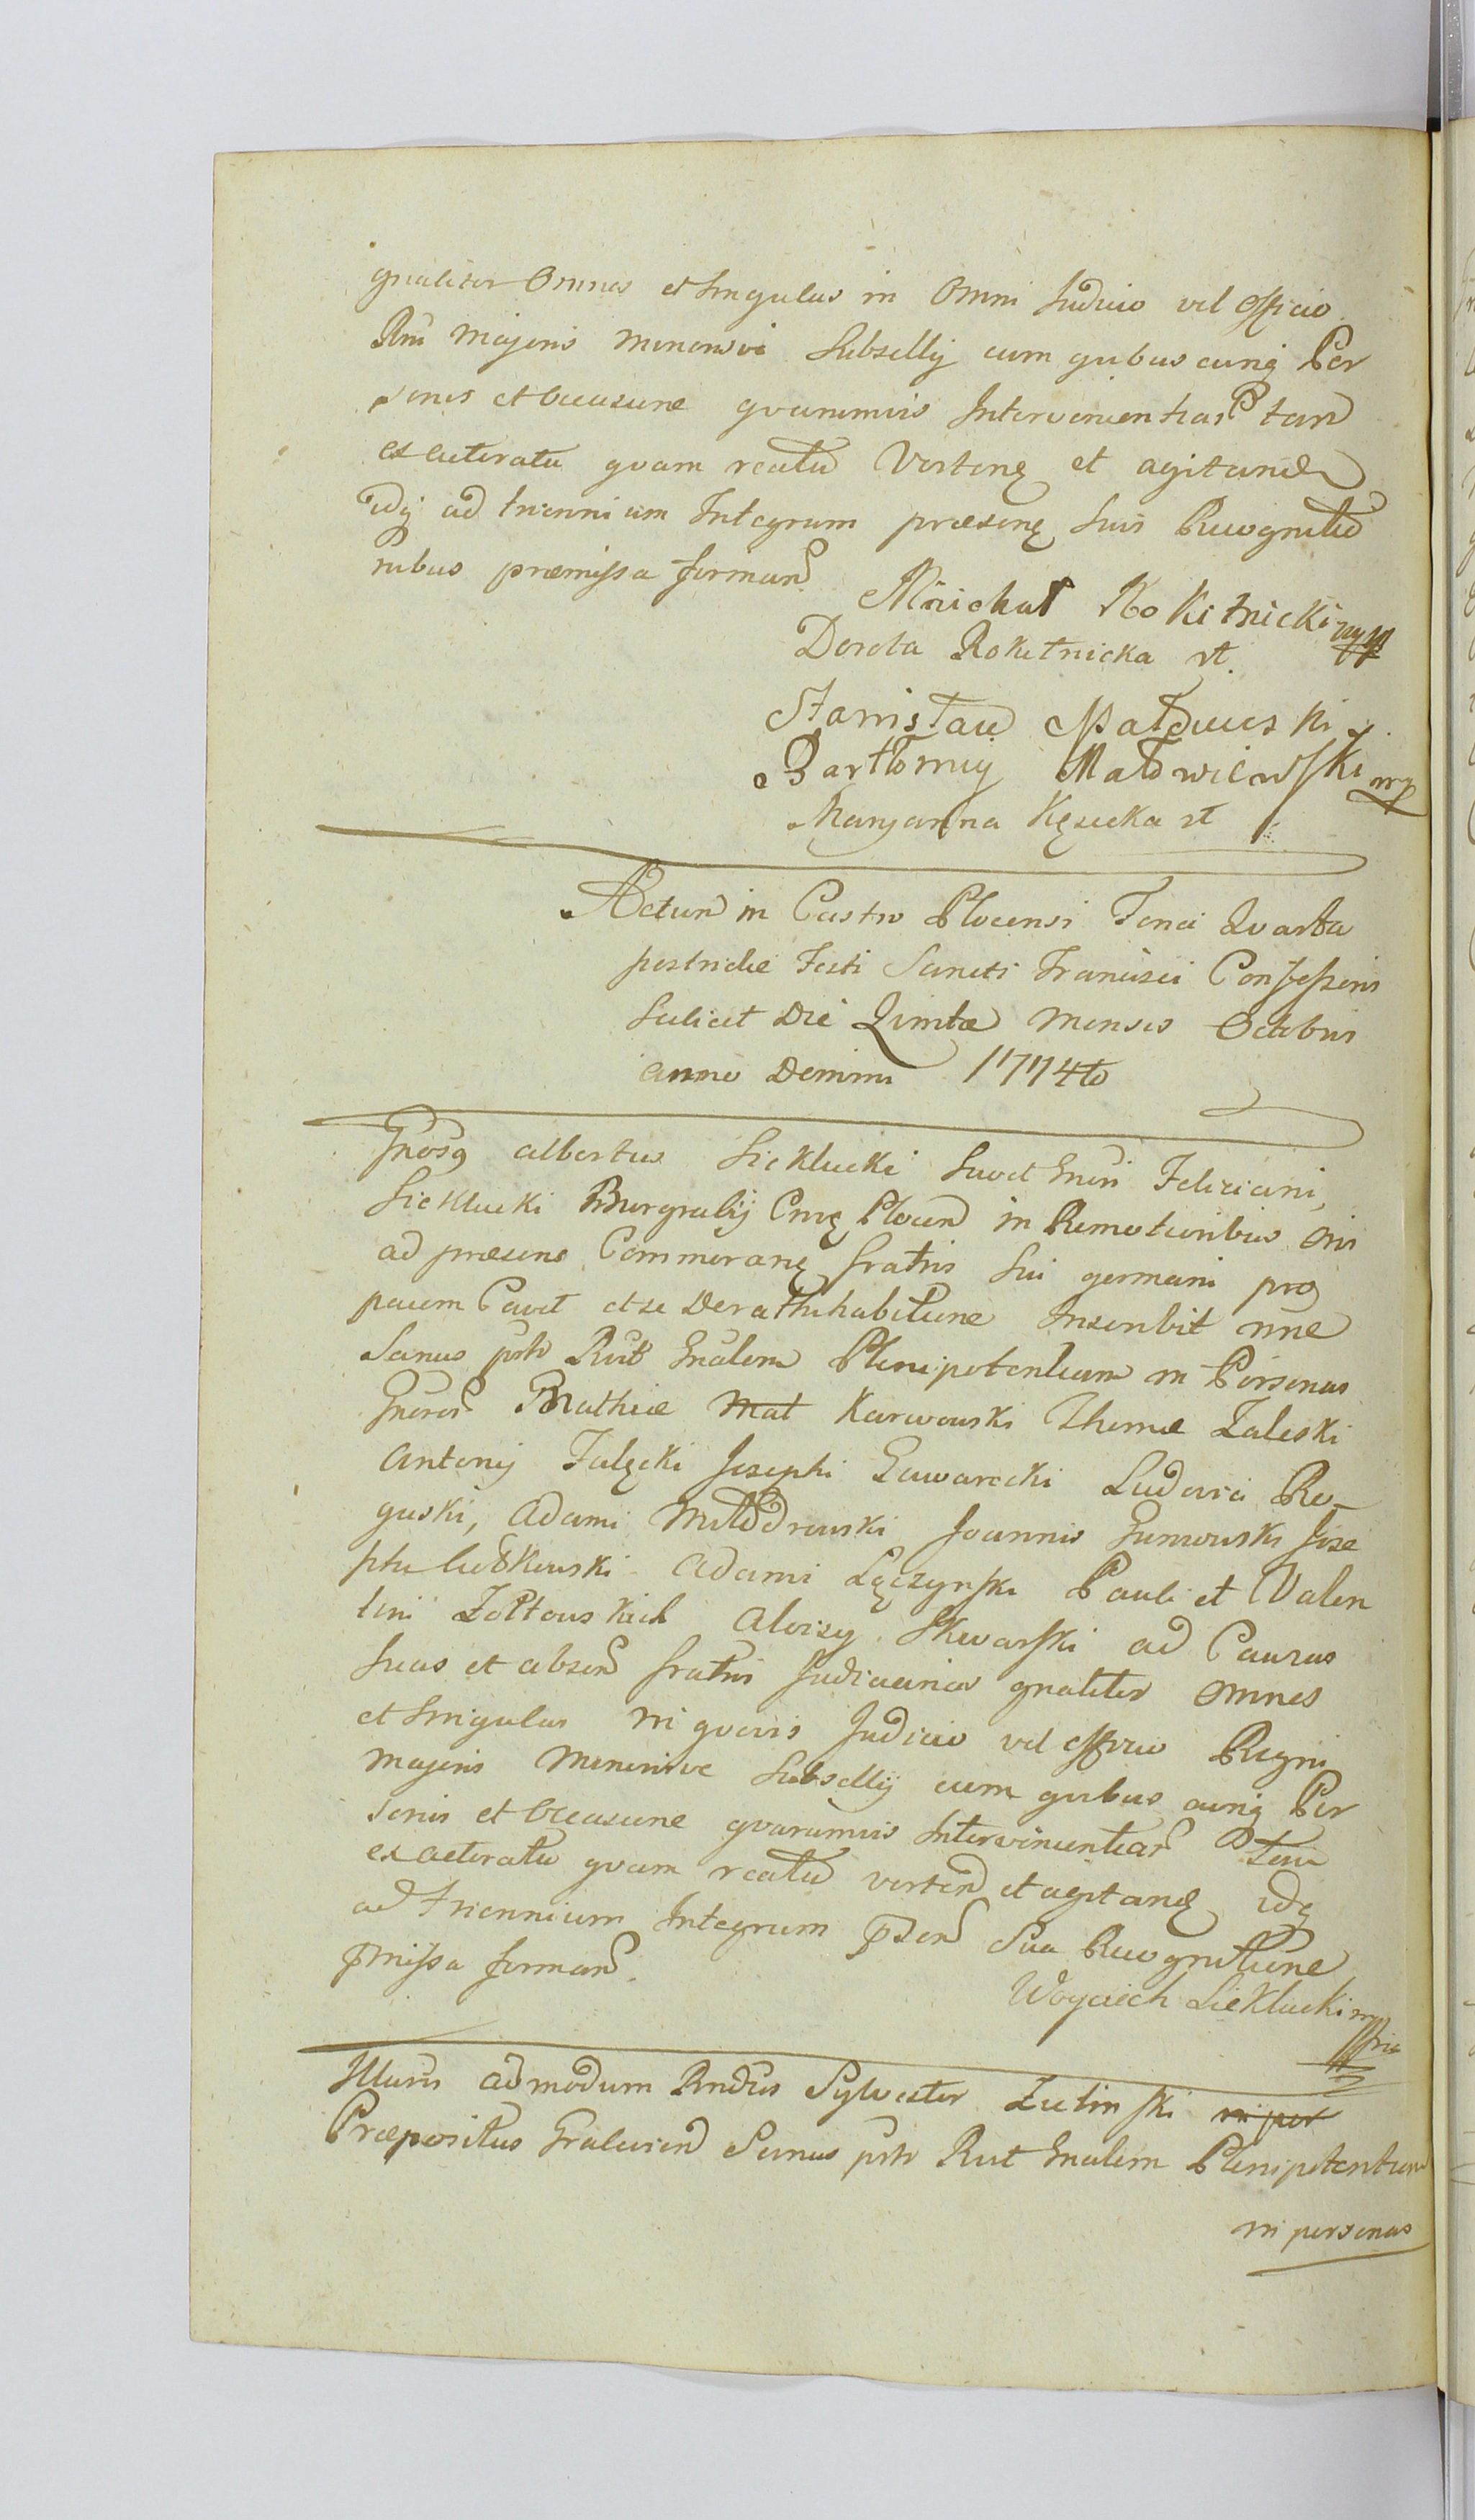 gnaliter Omnes et singulas in Omni Judicio vel officio
Rni Majoris minorisve Subsellij cum quibus cunq Per
sonis et occasione quarumvis Intervenientiar tam
ex acteratu quam reatu Vertenę et agitand
idq ad triennium Integrum præsenę suis Recognitio
nibus præmissa forman
Michał Rokitnicki mpp
Dorota Rokitnicka rt.
Stanisław Małdwiewski
Bartłomiy Małdwiewski mp
Maryanna Kęsicka rt
Actum in Castro Plocensi Feria Quarta
postridie Festi Sancti Francisci Confessoris
scilicet Die Quinta Mensis Octobris
anno Domini 1774to
Gnosq Albertus Sieklucki suo et Gnosi Feliciani
Sieklucki Burgrabij Cnrę Plocen in Remotioribus oris
ad præsens Commoranę fratris sui germani pro
quem Cavet et se de rathihabitione Inscribit nne
Sanus prto Rcit Gnalem Plenipotentiam in Personas
Gneros Mathiæ Mat Karwowski Thomæ Zaleski
Antonij Falęcki Josephi Gawarecki Ludovici Ro-
guski, Adami Młodrowski Joannis Gumowski Jose
phi Lutkowski Adami Łączynski Pauli et Valen
tini Zołtowskich Aloizy Skwarski ad Causas
suas et absen fratris Judiciarias gnaliter omnes
et singulas in quovis Judicio vel officio Regni
majoris Minorisve Subsellij cum quibus cunq Per
sonis et occasione quarumvis Intervenientiar tam
ex acteratu quam reatu verten et agitand idq
ad triennium Integrum psen sua Recognitione
pmissa forman.
Woyciech Sieklucki mppria
Illuris admodum Rndus Sylvester Zielinski in per
Præpositus Gralevien Sanus prto Rcit Gnalem Plenipotentiam
in personas